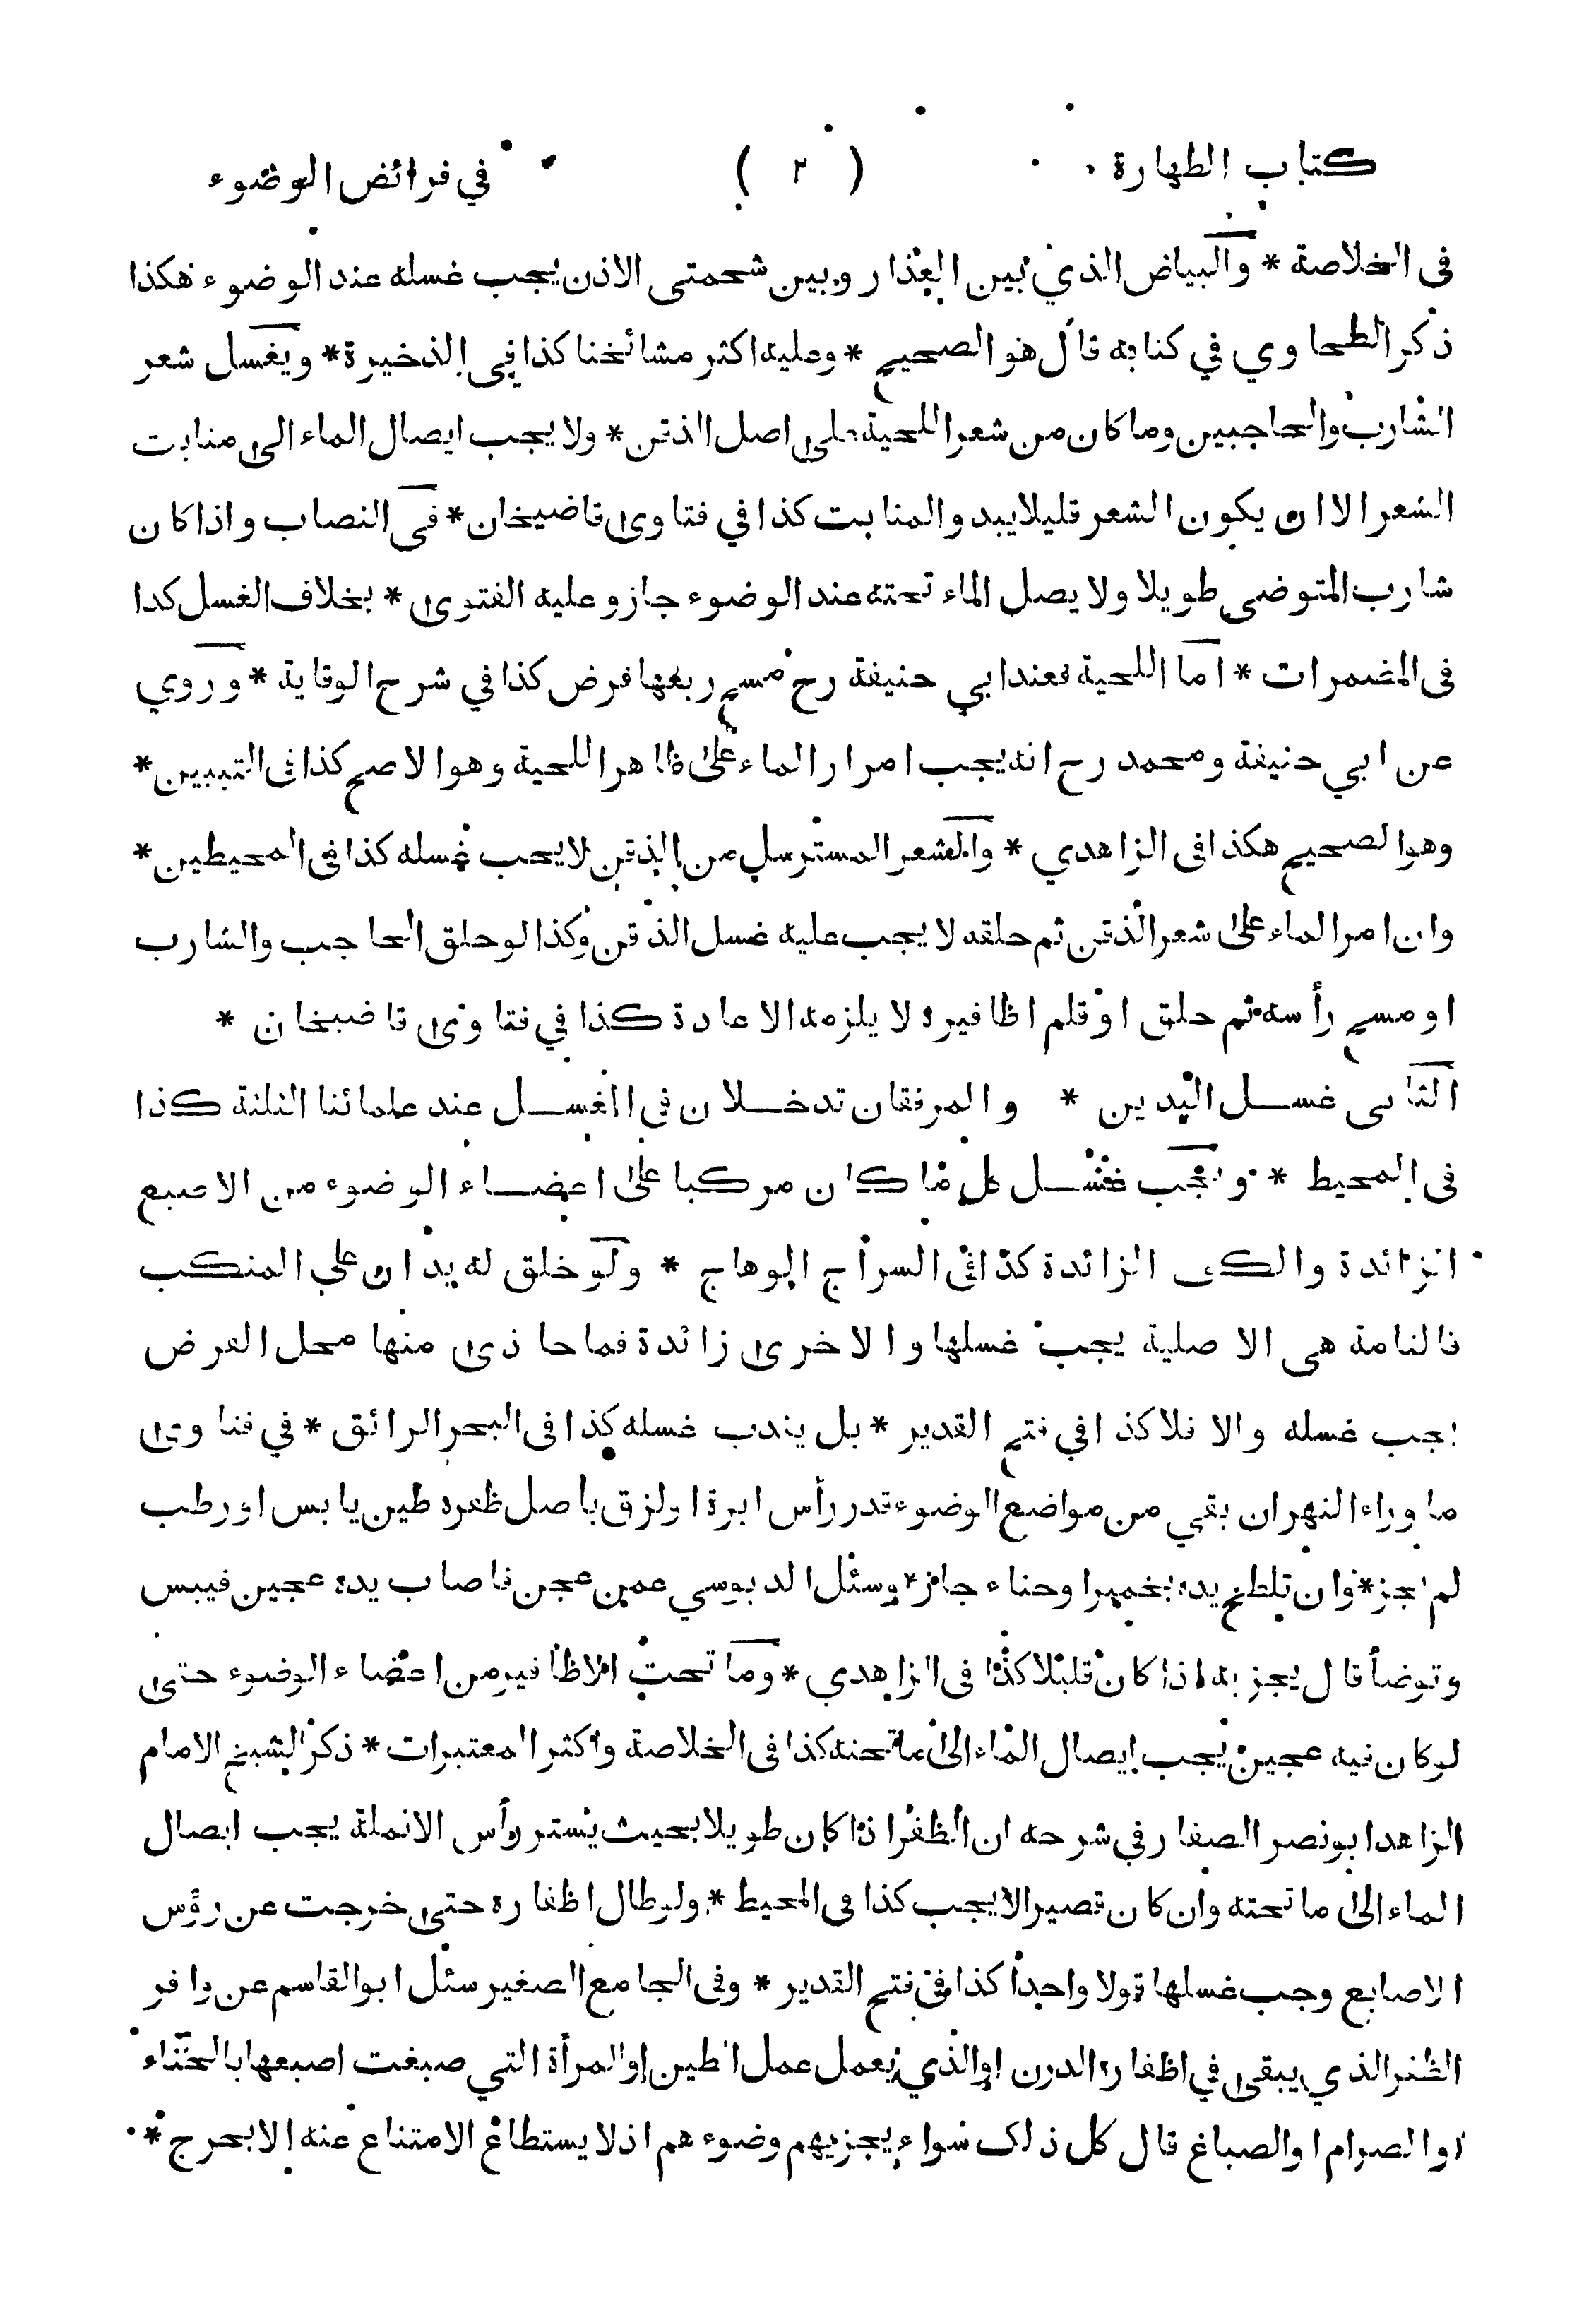 كتاب الطهارة ( ٢ ) في فرائض الوضوء
فى الخلاصة * والبياض الذي بين العذار وبين شحمتى الاذن يجب غسله عند الوضوء هكذا
ذكر الطحاوي في كتابه قال هو الصحيح * وعليه اكثر مشائخنا كذا فى الذخيرة * ويغسل شعر
الشارب والحاجبين وما كان من شعر اللحية على اصل الذقن * ولا يجب ايصال الماء الى منابت
الشعر الا ان يكون الشعر قليلا يبدو المنابت كذا في فتاوى قاضيخان * فى النصاب واذا كان
شارب المتوضى طويلا ولا يصل الماء تحته عند الوضوء جاز وعليه الفتوى * بخلاف الغسل كذا
فى المضمرات * اما اللحية فعند ابي حنيفة رح مسح ربعها فرض كذا في شرح الوقاية * وروي
عن ابي حنيفة ومحمد رح انه يجب امرار الماء على ظاهر اللحية وهو الاصح كذا فى التبيين *
وهو الصحيح هكذا فى الزاهدي * والشعر المسترسل من الذقن لا يجب غسله كذا فى المحيطين *
وان امر الماء على شعر الذقن ثم حلقه لا يجب عليه غسل الذقن وكذا لو حلق الحاجب والشارب
او مسح رأسه ثم حلق او قلم اظافيره لا يلزمه الاعادة كذا في فتاوى قاضيخان *
الثانى غسل اليدين * والمرفقان تدخلان في الغسل عند علمائنا الثلثة كذا
فى المحيط * ويجب غسل كل ما كان مركبا على اعضاء الوضوء من الاصبع
الزائدة والكف الزائدة كذا فى السراج الوهاج * ولو خلق له يدان على المنكب
فالتامة هى الاصلية يجب غسلها والاخرى زائدة فما حاذى منها محل الفرض
يجب غسله والا فلا كذا في فتح القدير * بل يندب غسله كذا فى البحر الرائق * في فتاوى
ما وراء النهر ان بقي من مواضع الوضوء قدر رأس ابرة او لزق باصل ظفره طين يابس او رطب
لم يجز * وان تلطخ يده بخمير او حناء جاز * وسئل الدبوسي عمن عجن فاصاب يده عجين فيبس
وتوضأ قال يجزيه اذا كان قليلا كذا فى الزاهدي * وما تحت الاظافير من اعضاء الوضوء حتى
لو كان فيه عجين يجب ايصال الماء الى ما تحته كذا فى الخلاصة واكثر المعتبرات * ذكر الشيخ الامام
الزاهد ابو نصر الصفار في شرحه ان الظفر اذا كان طويلا بحيث يستر رأس الانملة يجب ايصال
الماء الى ما تحته وان كان قصيرا لا يجب كذا فى المحيط * ولو طال اظفاره حتى خرجت عن رؤس
الاصابع وجب غسلها قولا واحدا كذا فى فتح القدير * وفى الجامع الصغير سئل ابو القاسم عن وافر
الظفر الذي يبقى في اظفاره الدرن او الذي يعمل عمل الطين او المرأة التي صبغت اصبعها بالحناء
او الصرام او الصباغ قال كل ذلك سواء يجزيهم وضوءهم اذ لا يستطاع الامتناع عنه الا بحرج *